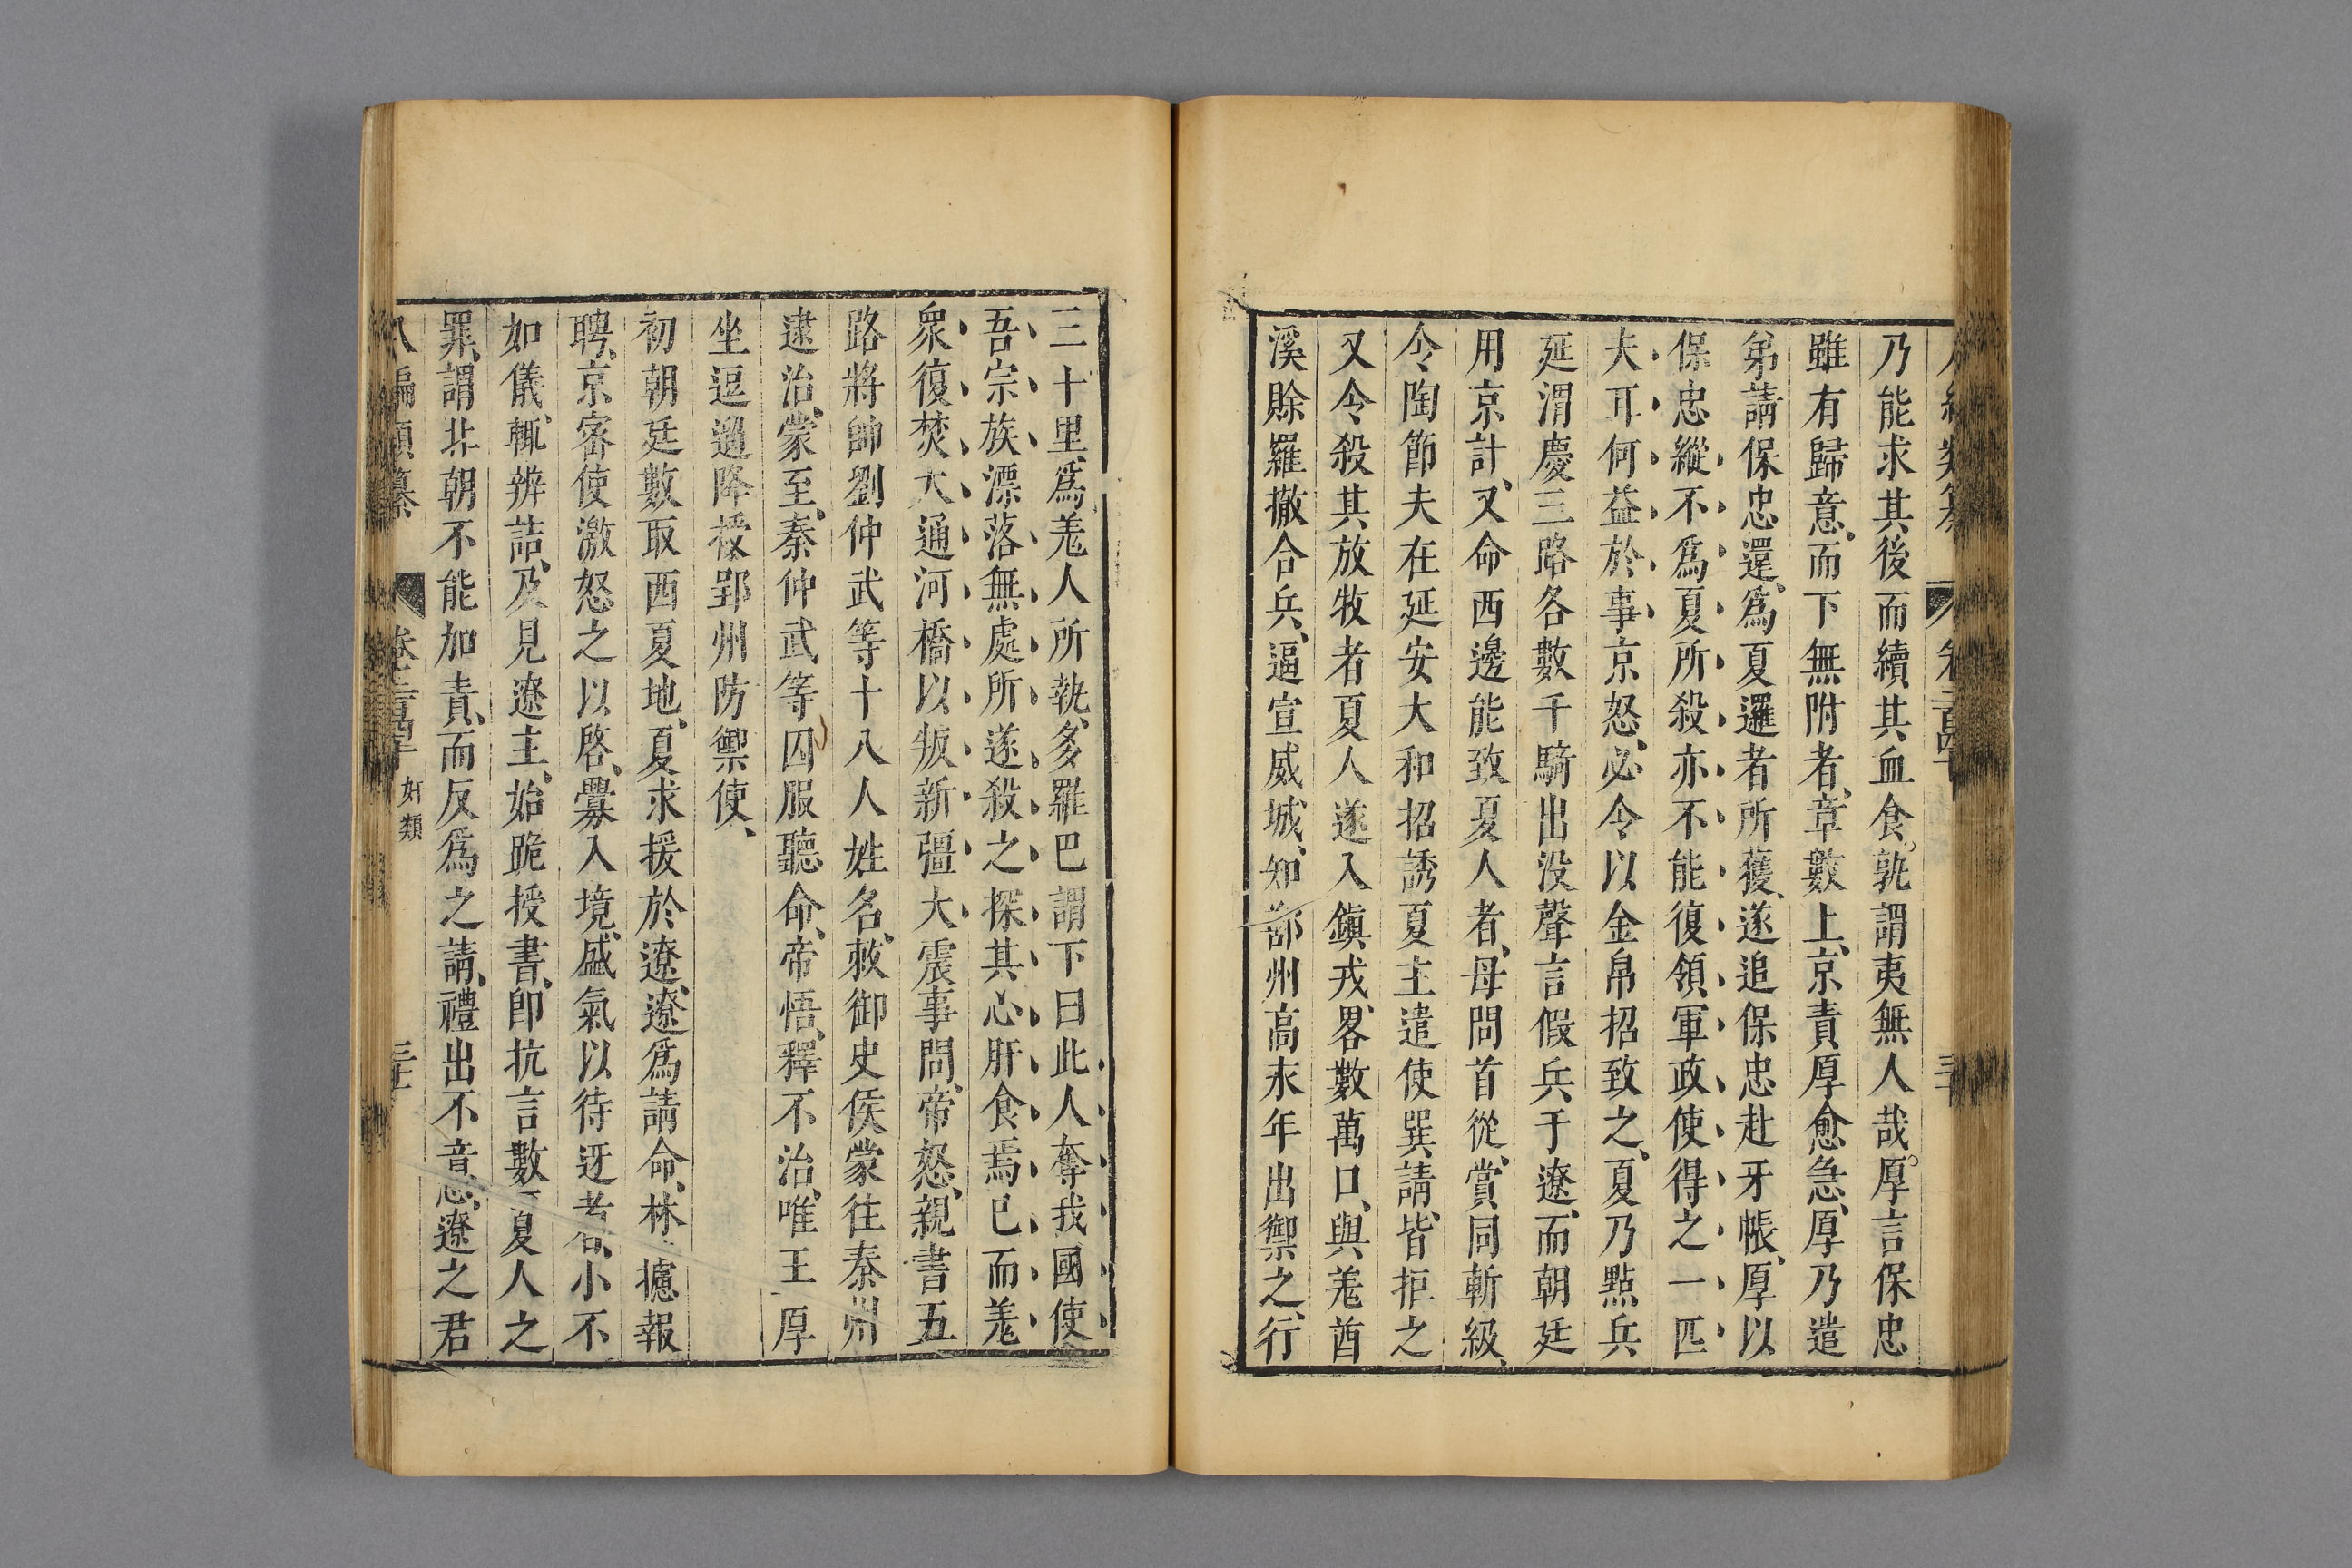 乃能求其後而續其血食。孰謂夷無人哉。厚言保忠
雖有歸意、而下無附者、章數上、京責厚愈急、厚乃遣
弟請保忠還、爲夏邏者所獲、遂追保忠赴牙帳、厚以
保忠縱不爲夏所殺亦不能復領軍政使得之一匹
夫耳何益於事京怒、必令以金帛招致之、夏乃點兵
延渭慶三路各數千騎出没聲言假兵于遼、而朝廷
用京計、又命西邊能致夏人者、毋問首從、賞同斬級、
令陶節夫在延安大和招誘夏主遣使巽請、皆拒之
又令殺其放牧者夏人遂入鎭戎、畧數萬口、與羗酋
溪賒羅撒合兵、逼宣威城、知鄯州高永年出禦之、行
三十里、爲羗人所執、多羅巴謂下曰此人奪我國使
吾宗族漂落無處所遂殺之探其心肝食焉已而羗
衆復焚大通河橋以叛新彊大震事問、帝怒、親書五
路將帥劉仲武等十八人姓名、敕御史侯蒙往秦州
逮治、蒙至、秦仲武等囚服聽命、帝悟、釋不治、唯王厚
坐逗遛降授郢州防禦使、
初朝廷數取西夏地、夏求援於遼、遼爲請命、林攄報
聘、京密使激怒之以啓釁、入境、盛氣以待迓者、小不
如儀、輒辨詰、及見遼主、始跪授書、卽抗言數夏人之
罪、謂北朝不能加責、而反爲之請、禮出不意、遼之君
八編類纂 奸類